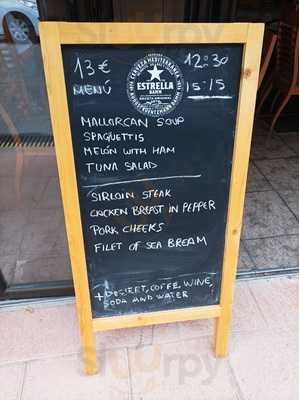 13€
MENÚ
CERVEZA MEDITERRÁNEA
ESTRELLA
DAMM
12:30
15:15
MALLORCAN SOUP
SPAGUETTIS
MELÓN WITH HAM
TUNA SALAD
SIRLOIN STEAK
CHICKEN BREAST IN PEPPER
PORK CHEEKS
FILET OF SEA BREAM
+ DESSERT, COFFE, WINE,
SODA AND WATER
Sluurpy